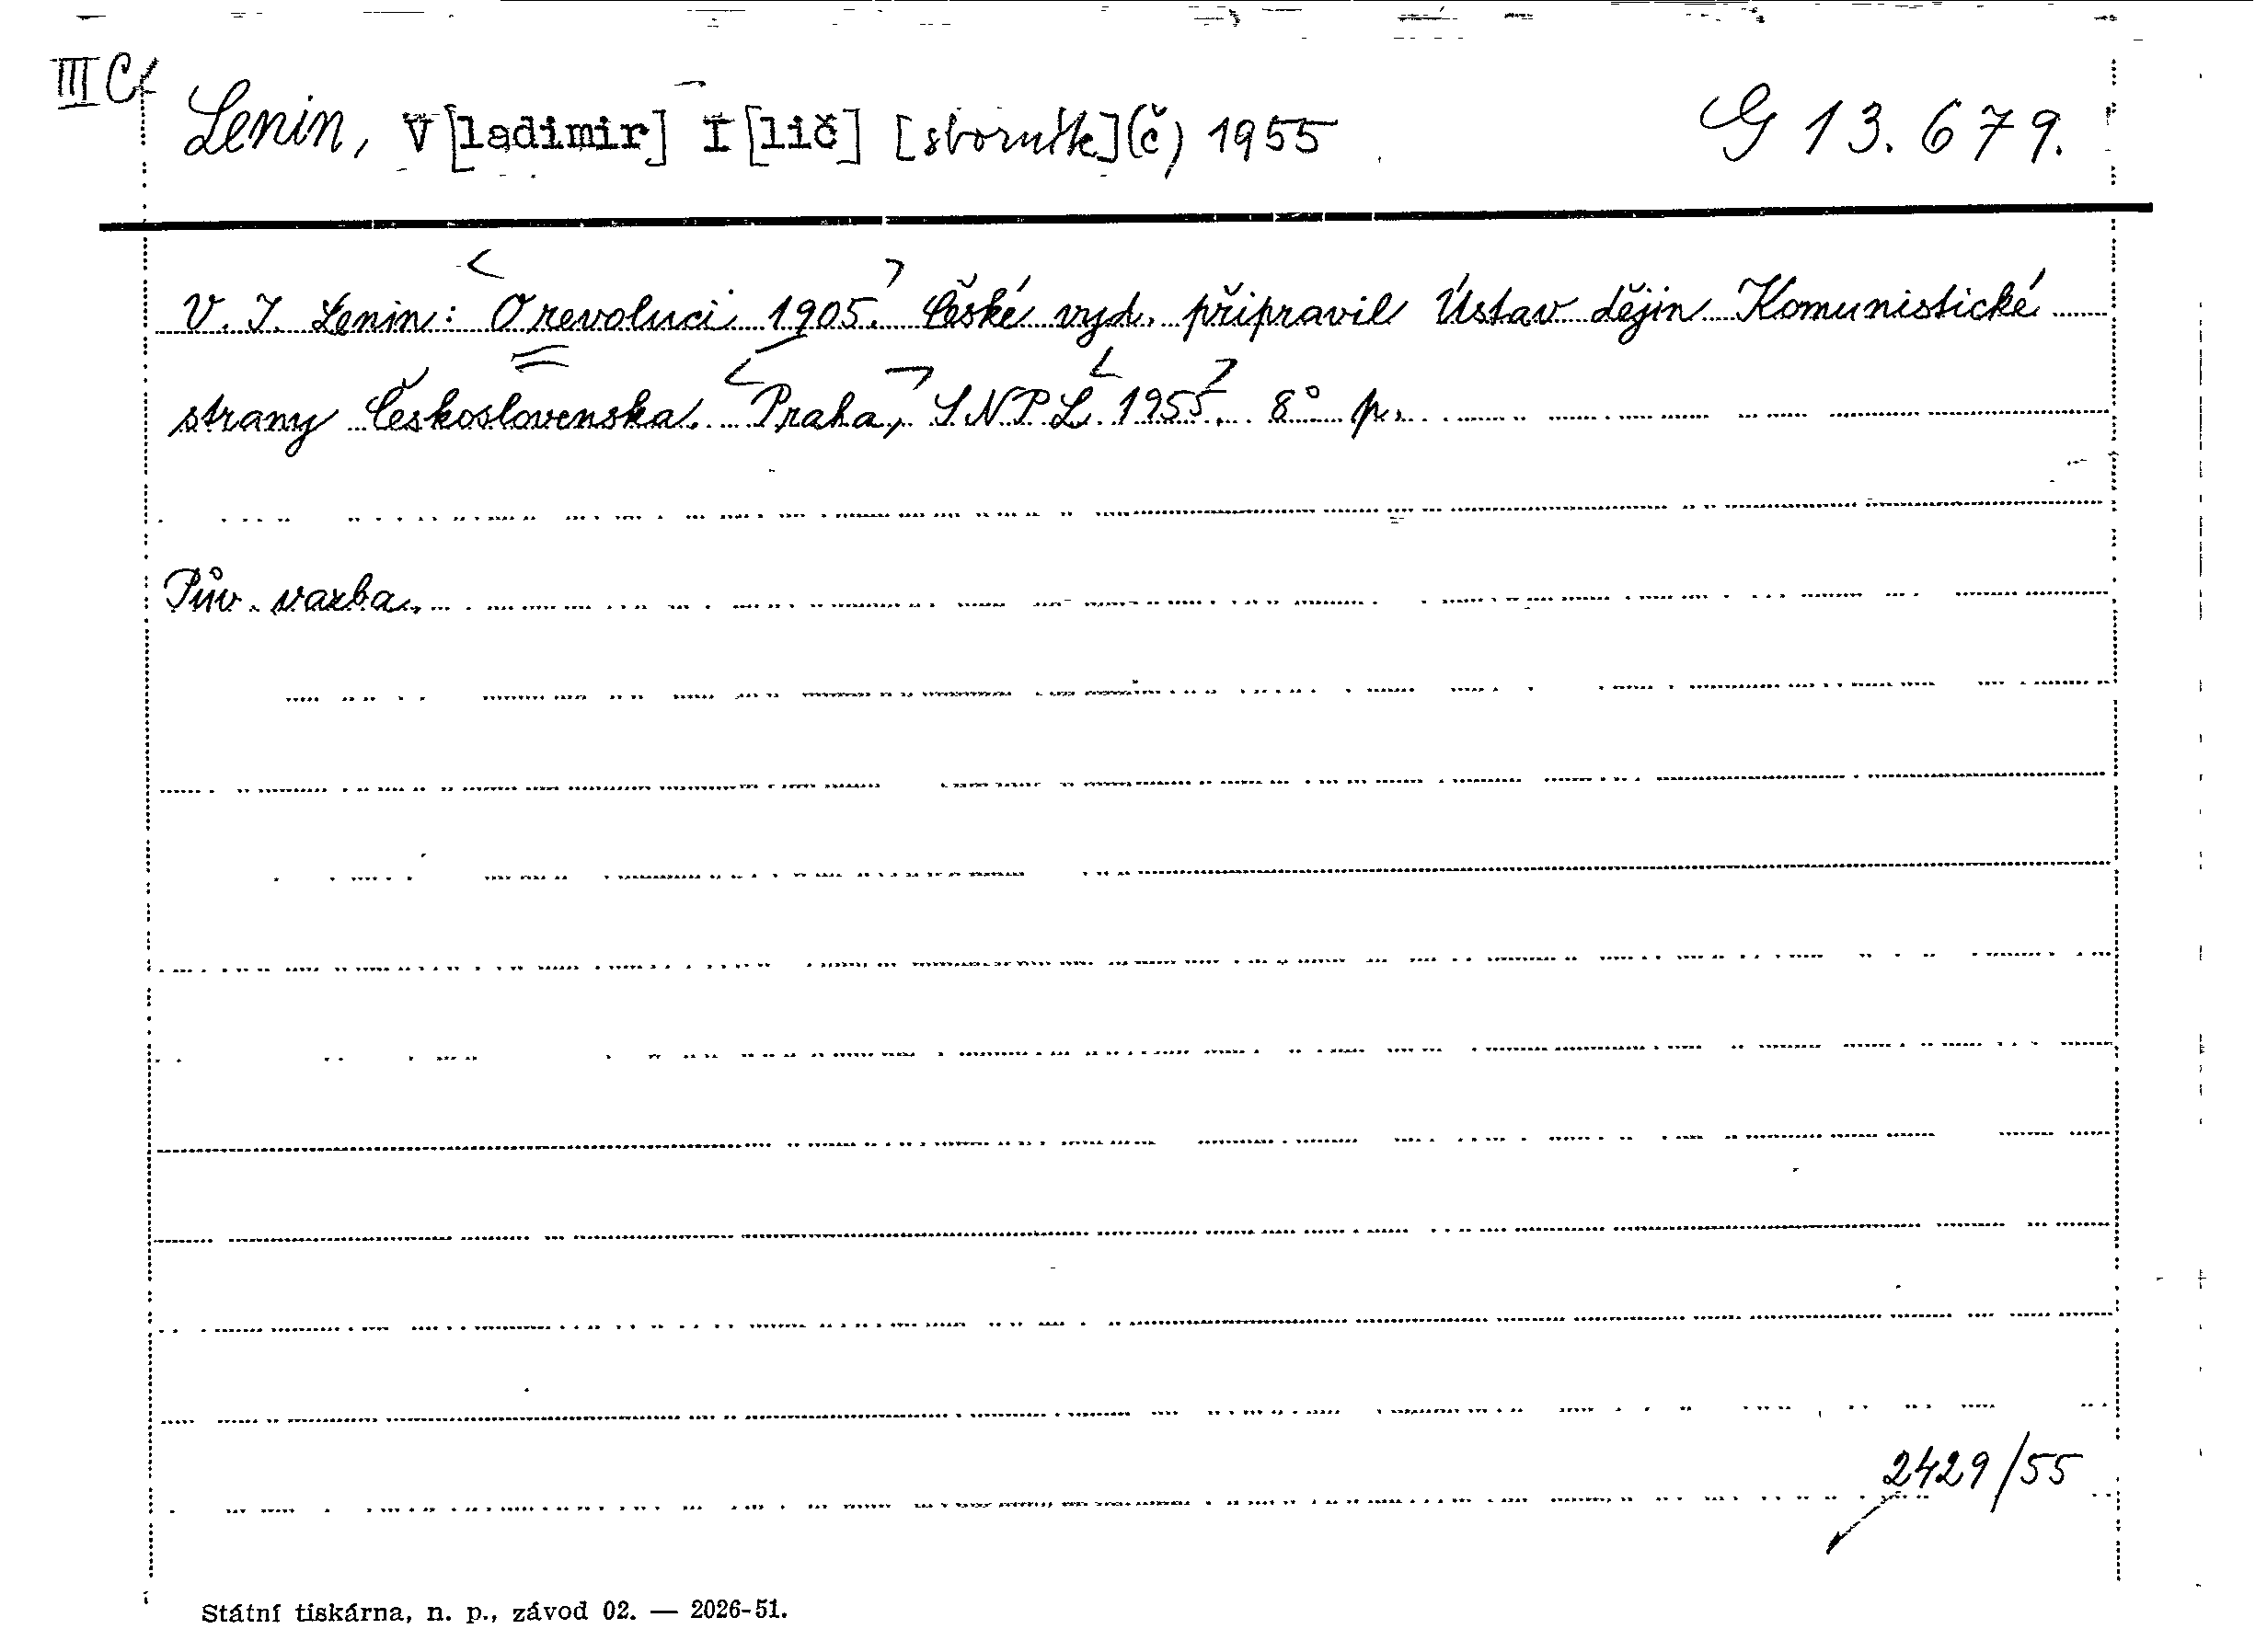 III Cf
Lenin, V[ladimir] I[lič] [sborník](č) 1955 G 13.679.
V. I. Lenin: O revoluci 1905. České vyd. připravil Ústav dějin Komunistické
strany Československa. Praha, SNPL 1955. 8° p.
Pův. vazba.
2429/55
Státní tiskárna, n. p., závod 02. — 2026-51.